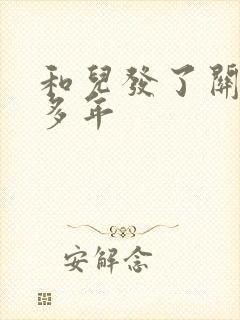 和兒發了關
多年
安解念